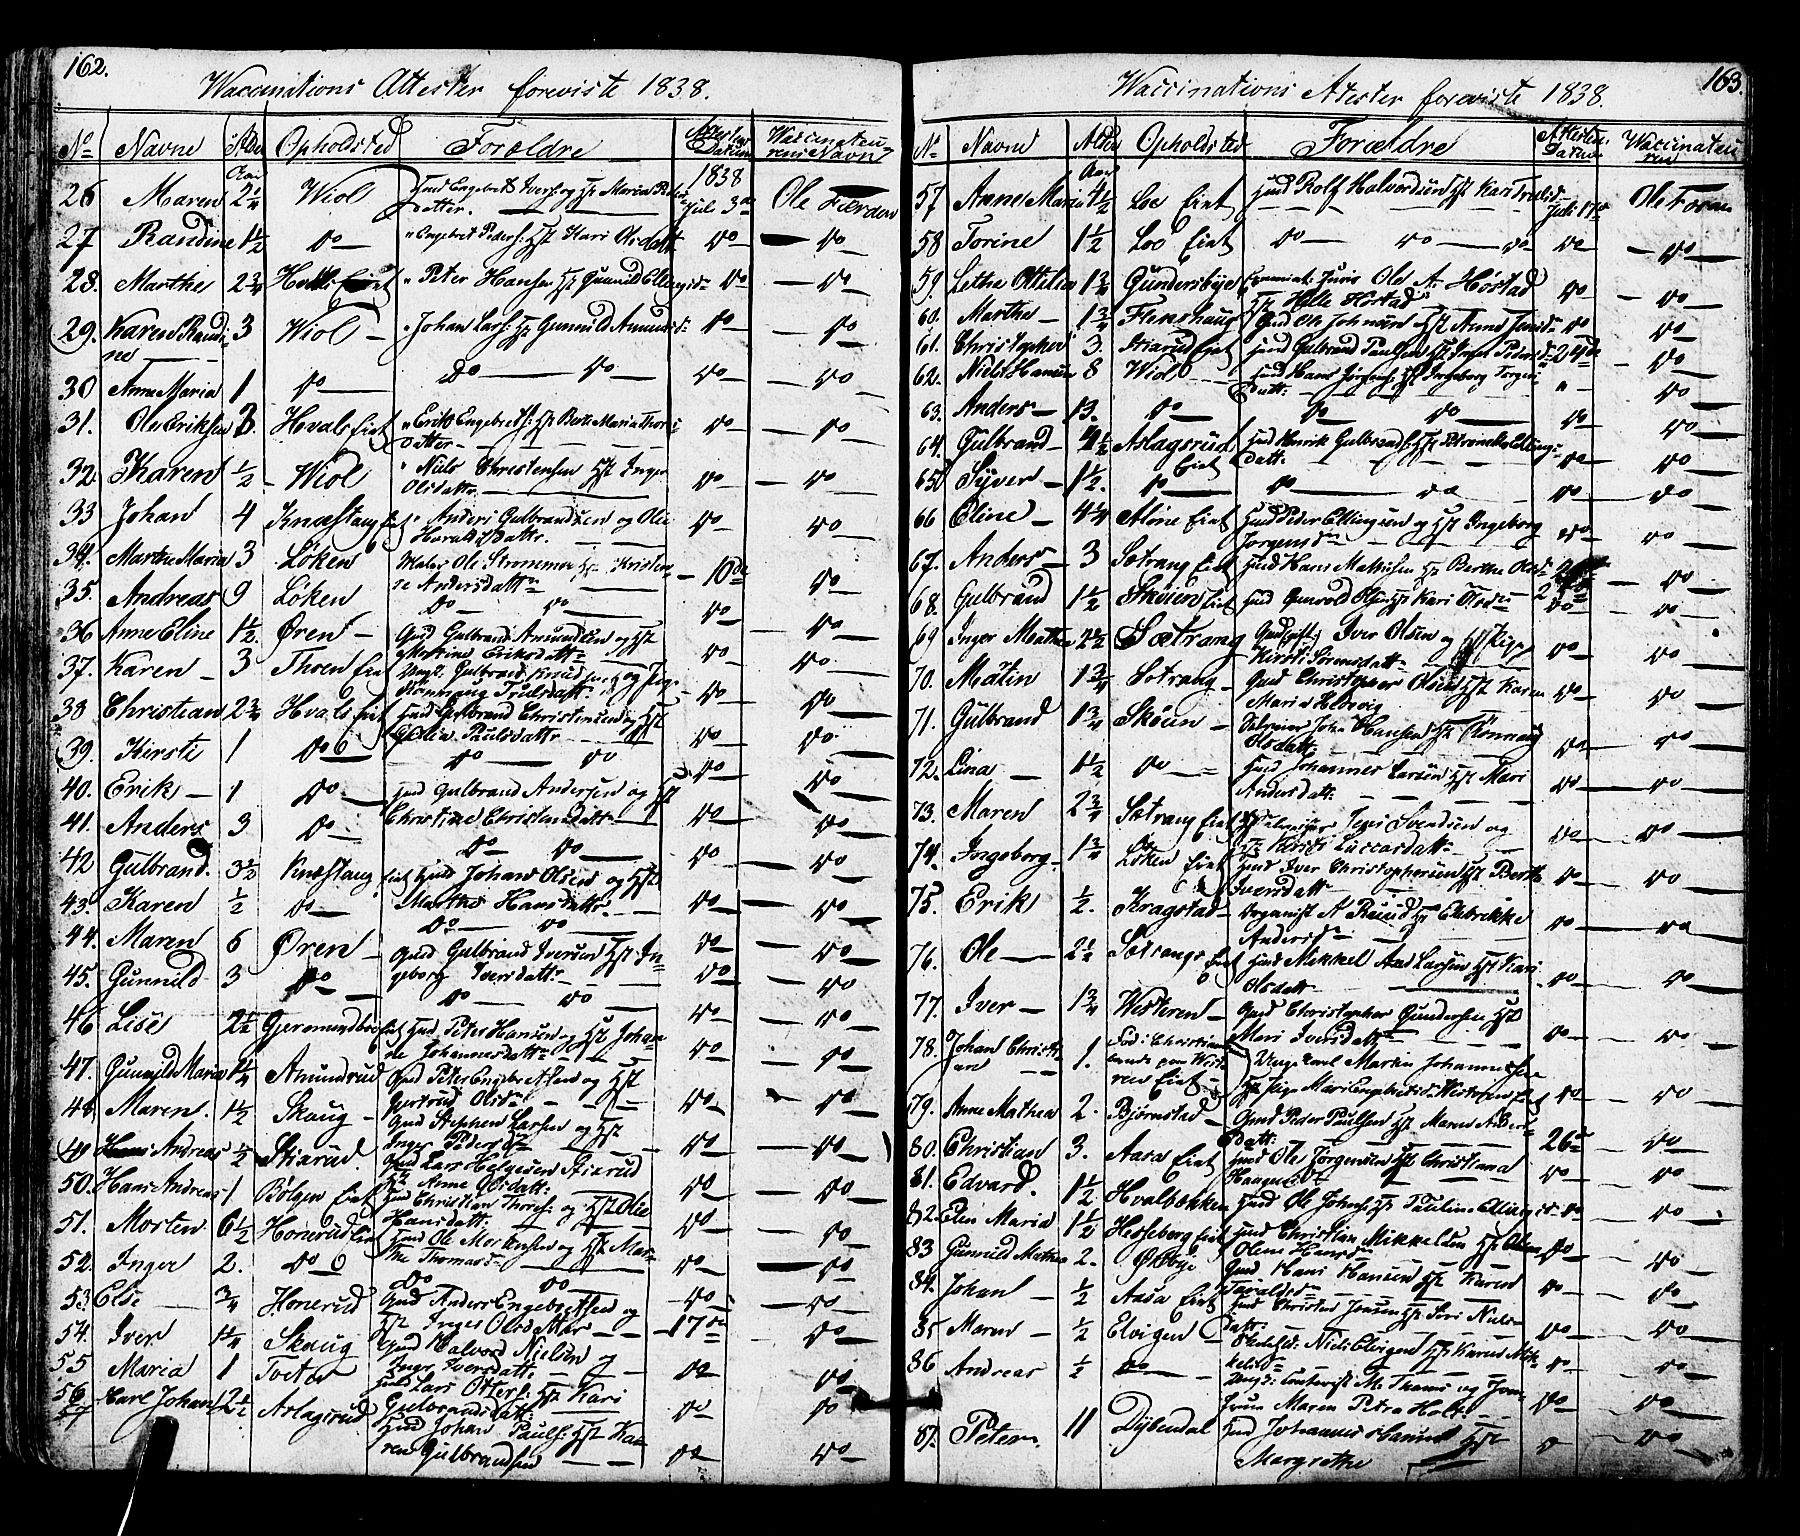 162.
Waccinations Attester foreviste 1838.
No Navne Alder Opholdsted Forældre Attestens Datum Waccinateurens Navn
Aar 1838
26 Maren 2 1/4 Wiol Huusmd Engebret Iversen og Hst Maria Peders
datter. Juli 3die Ole Færden
27 Randine 1 1/2 do " Engebret Peders: Hst Kari Olsdatt do do
28. Marthe 2 3/4 Hvals Eiet " Peter Hansen Hst Gunnild Ellingsd do do
29. Karen Randi- 3 Wiol " Johan Lars: Hst Gunnild Amunds: do do
ne
30 Anne Maria 1 do do do do do
31. Ole Eriksen 3 Hvals Eiet " Erik Engebrets: Hst Berte Maria Thors-
datter do do
32. Karen 1/2 Wiol " Niels Christensen Hst Inger
Olsdattr. do do
33 Johan 4 Knæstang Eiet " Anders Gulbrandsen og Olea
Haraldsdattr. do do
34. Marthe Maria 3 Løken Maler Ole Strømmen Hst Kristen-
se Andersdattr 10de do
35. Andreas 9 Løken do do do do
36 Anne Eline 1 1/2. Øren Gmd Gulbrand Amundsen og Hst
Eriksdattr do do
37. Karen 3 Thoen Eiet Ungk. Gulbrand Knudsen og Pige
Rønnaug Trulsdattr. do do
38 Christian 2 3/4 Hvals Eiet Hmd Gulbrand Christensen og Hst
Paulsdattr do do
39. Kirsti 1 do do do do do
40. Erik 1 do Hmd Gulbrand Andersen og Hst
Christine Christiansdattr do do
41. Anders 3 do do do do do
42 Gulbrand. 3 1/2 Knæstang Eiet Hmd Johan Olsen og Hst
Marthe Hansdattr. do do
43. Karen 1/2 do do do do do
44. Maren 6 Øren Gmd Gulbrand Iversen Hst In-
geborg Iversdattr do do
45. Gunnild 3 do do do do do
46 Lise 2 1/2 Gjermundbo Eiet Hmd Peter Hansen og Hst Johan-
ne Johannesdattr do do
47. Gunnild Maria 1 1/4 Amundrud Gmd Peter Engebretsen og Hst
Gertrud Olsd do do
48 Maren. 1 1/2 Skaug Gmd Stephen Larsen og Hst
Inger Pedersd do do
49 Andreas 1/2 Stiarud. Gmd Lars Helgesen Stiarud
Hst Anne Olsdatt. do do
50. Hans Andreas 1 Bølgen Eiet Hmd Christian Thors: og Hst Olea
Hansdatt. do do
51. Morten 6 1/2 Honerud Eiet Hmd Ole Mortensen og Hst Mar-
the Thomasd do do
52. Inger 2. do do do do do
53 Else 3/4 Honerud Gmd Anders Engebretsen og
Hst Inger Olsd do do
54. Iver 1 1/4 Skaug Gmd Halvor Nielsen og
Inger Iversdatt. 17de do
55 Maria 1 Tveter Hmd Lars Otters: Hst Kari
Gulbrandsdatt: do do
56 Karl Johan 2 1/2 Aslagsrud Hmd Johan Pauls: Hst Ka-
ren Gulbrandsen do do
163.
Waccinations Atester foreviste 1838.
No Navne Alder Opholdsted Forældre Attestens Datum Waccinateuren
Aar
57 Anne Maria 4 1/2 Loe Eiet Hmd Rolf Halvorsen Hst Kari Trulsd Juli 17de Ole Færden
58 Torine 1 1/2 Loe Eiet do do do do do
59. Lethe Ottilia 1 3/4 Gundersbye Juris Ole A. Høstad
Hst Helle Høstad do do
60. Marthe 1 3/4 Flenshaug Gmd Ole Johnsen Hst Anne Jensd do do
61. Christopher 3. Stiarud Eiet Hmd Gulbrand Paulsen Hst Inger Pedersd 24de do
62. Niels Hansen 8 Wiol Hmd Hans Jørgens: Hst Ingeborg Torgers
Datt: " do
63. Anders 13. do do do do do
64. Gulbrand 4 1/2 Aslagsrud Eiet Hmd Henrik Gulbrands: Hst Ellings-
datt. do do
65 Syver 1 1/2. do do do do do
66 Eline 4 1/4 Alme Eiet Hmd Peder Ellingsen og Hst Ingeborg
Jørgensd do do
67. Anders 3 Sætrang Eiet Hmd Hans Mathisen Hst Berthe Olsd do
68. Gulbrand 1 1/2 Skøien Eiet Hmd Gunvold Olsen Hst Kari Olsd do do
69 Inger Mathea 2 1/2 Sætrang Gmd Iver Olsen og Hst
Kirsti Sørensdatt do do
70. Matin 1 3/4 Sætrang Gmd Christopher Olsen Hst Karen
Maria Hedevig do do
71. Gulbrand 1 3/4 Skøien John Hansen Hst Rønnaug
Olsdatt: do do
72. Lina 1 1/2 do Hmd Johannes Larsen Hst Mari
Andersdatt: do do
73. Maren 2 3/4 Sætrang Eiet Svendsen og
Hst Kirsti Luccasdatt do do
74. Ingeborg 1 3/4 Løken Eiet Hmd Iver Christophersen Hst Berthe
Iversdatt do do
75. Erik 1/2. Kragstad Organist A Ruud Hst Ellevikke
Andersd do do
76. Ole 2 1/2 Sætrangs Eiet Hmd Mikkel Larsen Hst Kari
Olsdatt. do do
77. Iver 1 3/4 Westeren Gmd Christopher Gundersen Hst
Mari Iversdatt do do
78. Johan Christi- 1. Fød i Christian- Ungkarl Martin Johannesen
an sand paa Weste- Pige Mari Engebretsd Westeren Eiet do do
ren Eiet
79. Anne Mathea 2. Bjørnstad Gmd Peder Paulsen Hst Maren Anders-
Datt: do
80. Christian 3. Aasa Eiet Hmd Ole Jørgensen Hst Christiana
Haagensd 26de do
81. Edvard. 1 1/2 Hvalbækken Hmd Ole Johns: Hst Pauline Ellingsd do do
82. Elen Maria 1 1/2 Hesleberg Eiet Hmd Christian Mikkelsen Hst Olene
Olene Hansd do do
83 Gunnild Mathea 2. Gmd Hans Hansen Hst Karen
Taraldsd do do
84. Johan 1/2 Aasa Eiet Hmd Christen Jensen Hst Siri Niels-
datt: do do
85 Maren 1/2 Elvigen Niels Elvigen Hst Karen Mik-
kelsd do do
86 Andreas 1/2 do M. Thams og Jom-
frue Maren Petra Holt. do do
87. Peter 11 Dybendal Hmd Johannes Hst
Margrethe do do